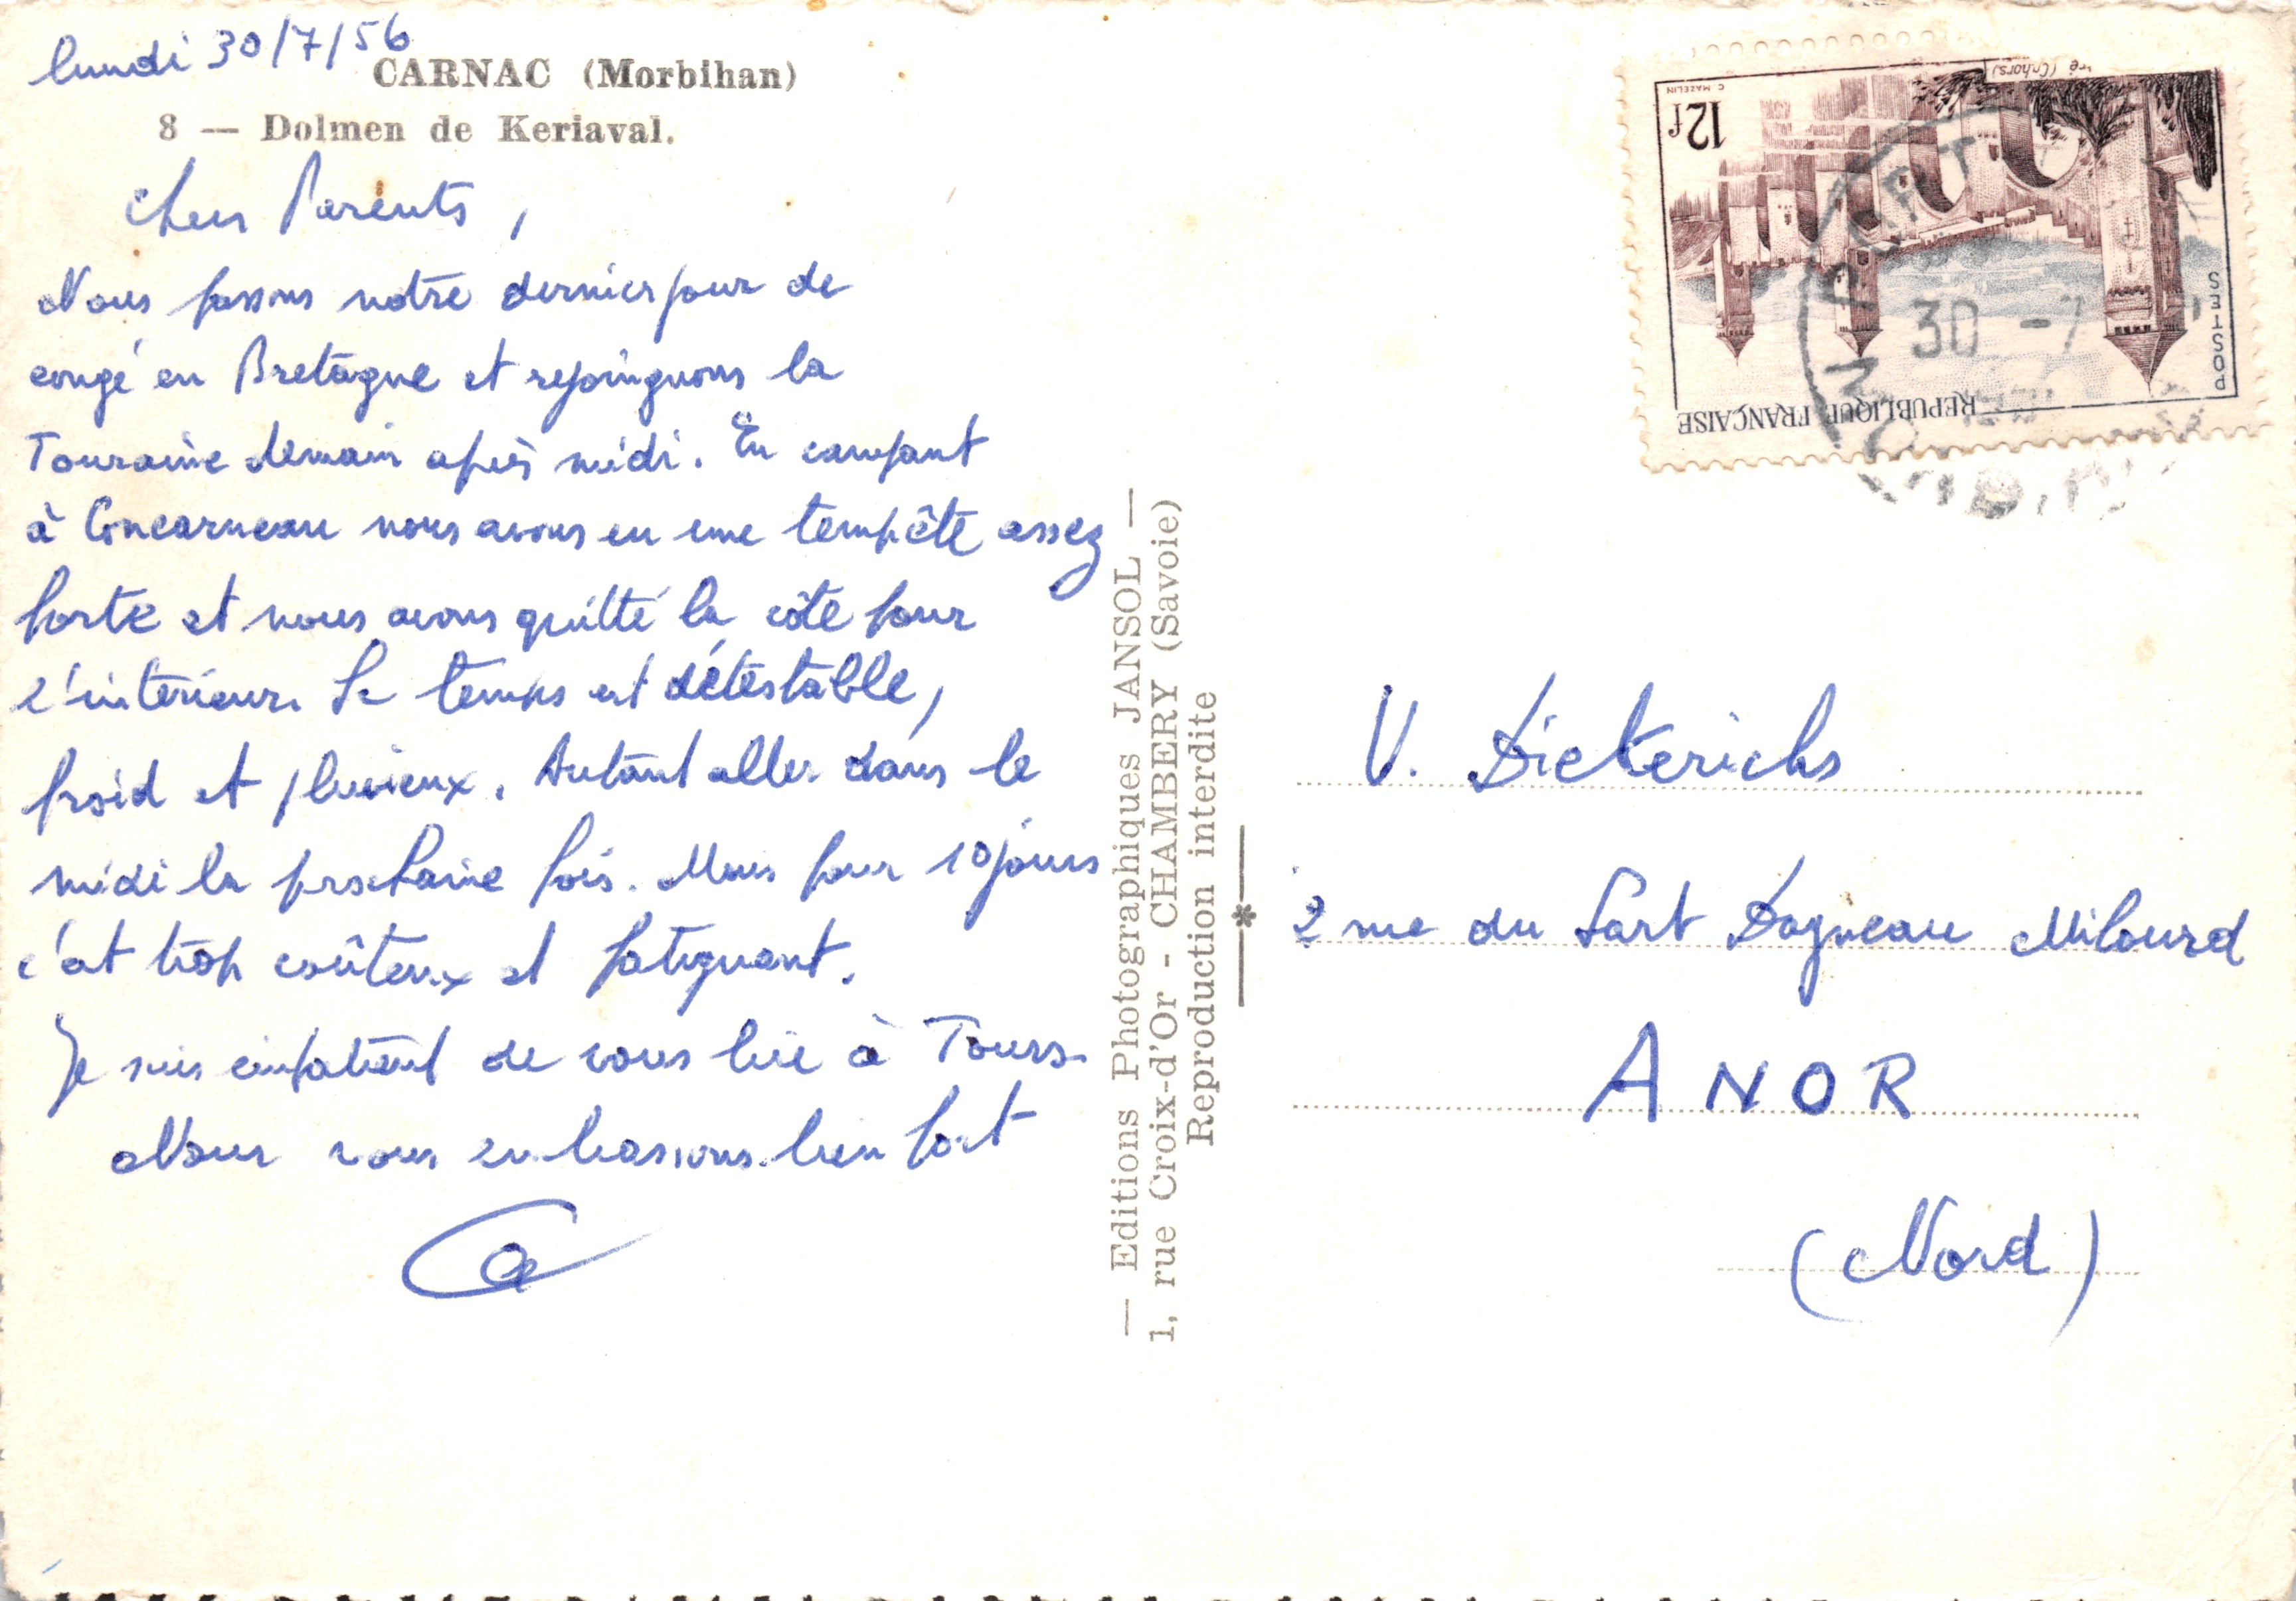 lundi 30/7/56
CARNAC (Morbihan)
8 — Dolmen de Keriaval.
Chers Parents,
Nous passons notre dernier jour de
congé en Bretagne et rejoignons la
Touraine demain après midi. En campant
à Concarneau nous avons eu une tempête assez
forte et nous avons quitté la côte pour
l'intérieur. Le temps est détestable,
froid et pluvieux. Autant aller dans le
midi la prochaine fois. Mais pour 10 jours
c'est trop coûteux et fatiguant.
Je suis impatient de vous lire à Tours.
Nous vous embrassons bien fort
— Editions Photographiques JANSOL —
1, rue Croix-d'Or - CHAMBERY (Savoie)
Reproduction interdite
12f
C. MAZELIN
(Cahors)
POSTES
REPUBLIQUE FRANÇAISE
30 -7
V. Dieterichs
2 rue du Sart Dagneau Milourd
ANOR
(Nord)